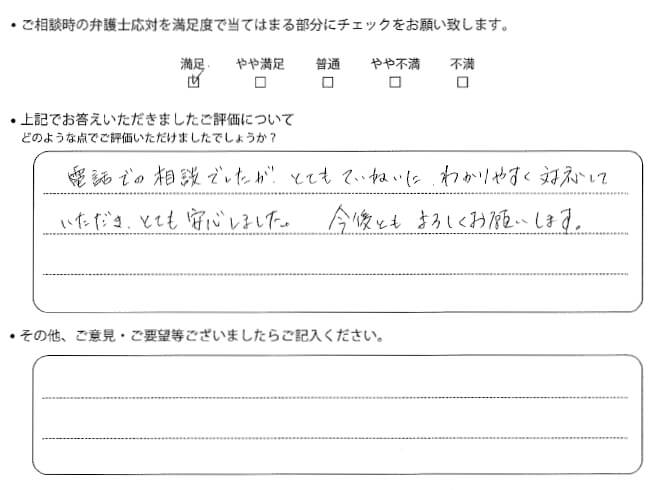 • ご相談時の弁護士応対を満足度で当てはまる部分にチェックをお願い致します。
満足 やや満足 普通 やや不満 不満
• 上記でお答えいただきましたご評価について
どのような点でご評価いただけましたでしょうか？
電話での相談でしたが、とてもていねいに、わかりやすく対応して
いただき、とても安心しました。 今後ともよろしくお願いします。
• その他、ご意見・ご要望等ございましたらご記入ください。